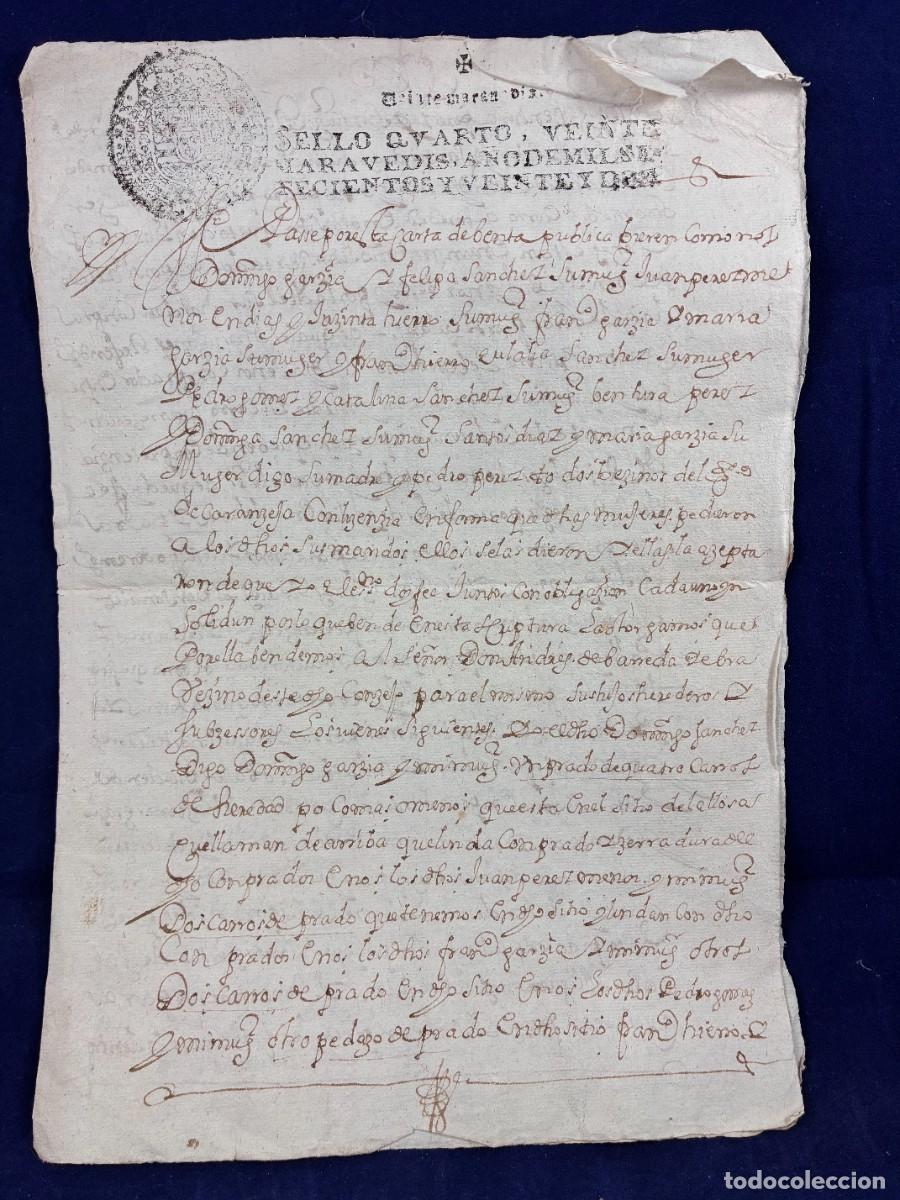 Veinte maravedis.
SELLO QVARTO, VEINTE
MARAVEDIS, AÑO DE MIL SE
TECIENTOS Y VEINTE Y DOS
por esta Carta de benta publica bieren Como nos
Domingo garzia y felipa Sanchez Sumugr Juan perez me
nor en dias y Jazinta hierro Sumugr franco garzia y maria
garzia Sumuger y franco hierro eulalia Sanchez Sumuger
Pedro gomez y Catalina Sanchez Sumugr bentura perez
y Dominga Sanchez Sumugr Santos diaz y maria garzia Su
Muger digo Sumadre y pedro perez todos bezinos del
de Caranzeja Conlizenzia en forma que dhas mugeres pedieron
a los dhos Sus maridos ellos Selas dieron y ellas la azepta
ron de que yo el esno doi fee Juntos Con obligazion Cada uno yn
Solidun por lo que ben de en esta escriptura otorgamos que
Por ella bendemos al Señor Don Andres de barreda
Vezino deste dho Conzejo para el mismo Sus hijos herederos y
Subzessores Los vienes Siguientes. Yo el dho Domingo Sanchez
Digo Domingo garzia y mi mugr Un prado de quatro Carros
de heredad poco mas o menos que esta en el Sitio de la llosa
que llaman de arriba que linda Con prado y zerradura de
dho Comprador e nos los dhos Juan perez menor y mi mugr
Dos Carros de prado que tenemos en dho Sitio y lindan Con dho
Comprador e nos los dhos franco garzia y mi mugr otros
Dos Carros de prado en dho Sitio e nos Los dhos Pedro gomez
y mi mugr otro pedazo de prado en dho Sitio franco hierro y
todocoleccion